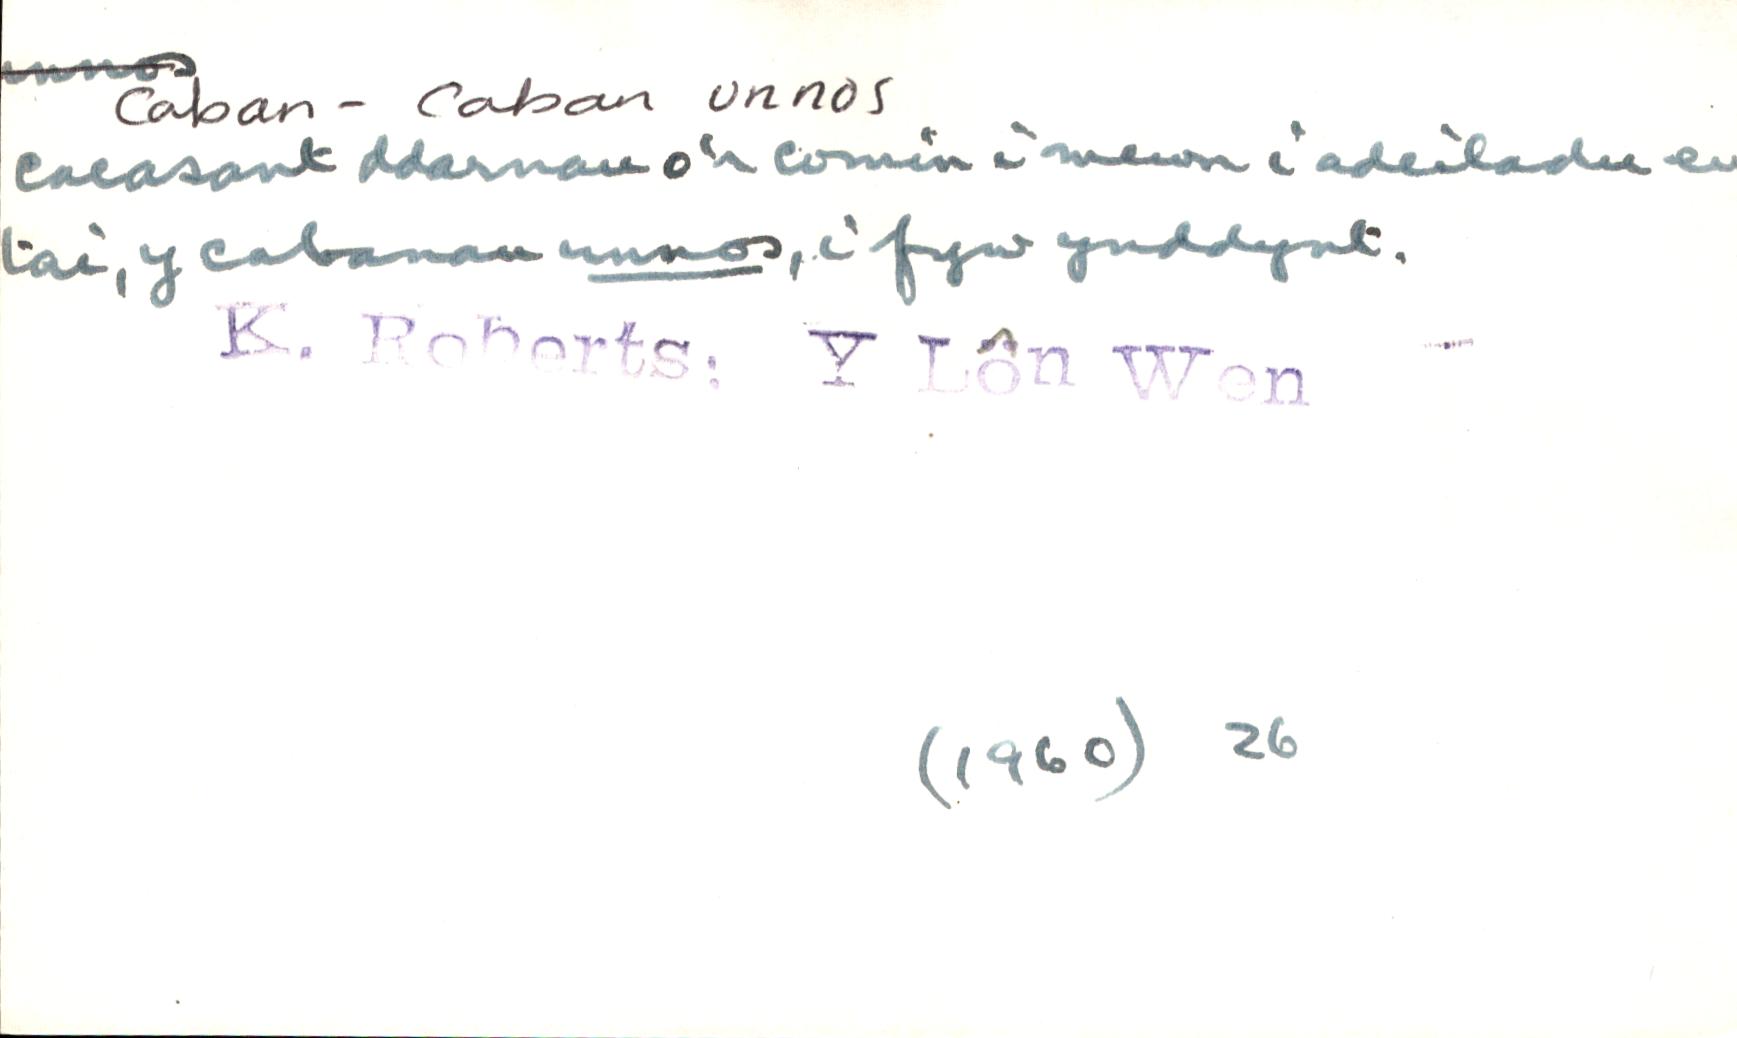 unnos
Caban - Caban unnos
caeasant ddarnau o'r comin i mewn i adeiladu eu
tai, y cabanau unnos, i fyw ynddynt.
K. Roberts: Y Lôn Wen -
(1960) 26